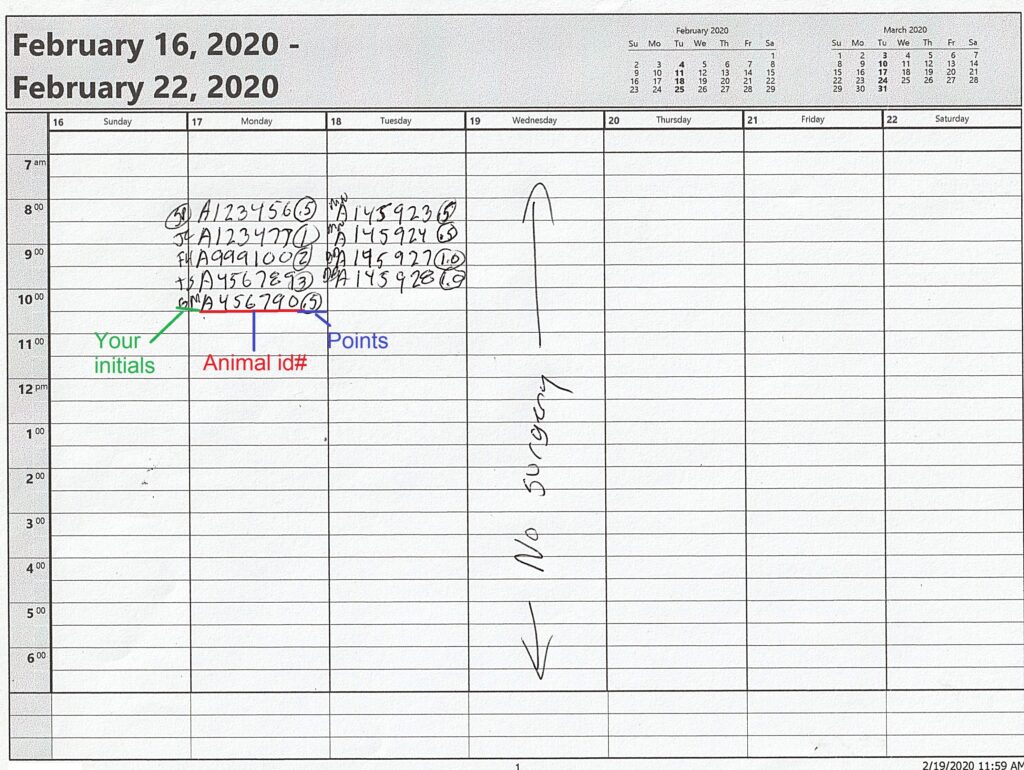 February 16, 2020 -
February 22, 2020
February 2020
Su Mo Tu We Th Fr Sa
1
2 3 4 5 6 7 8
9 10 11 12 13 14 15
16 17 18 19 20 21 22
23 24 25 26 27 28 29
March 2020
Su Mo Tu We Th Fr Sa
1 2 3 4 5 6 7
8 9 10 11 12 13 14
15 16 17 18 19 20 21
22 23 24 25 26 27 28
29 30 31
16 Sunday 17 Monday 18 Tuesday 19 Wednesday 20 Thursday 21 Friday 22 Saturday
7 am
8 00
A123456 .5 A145923 .5
A123477 1 A145924 .5
9 00
FH A999100 2 A145927 1.0
TS A456789 3 A145928 1.0
10 00
GM A456790 .5
Your
initials
Animal id#
Points
11 00
12 pm
1 00
2 00
3 00
4 00
5 00
6 00
No surgery
1
2/19/2020 11:59 AM